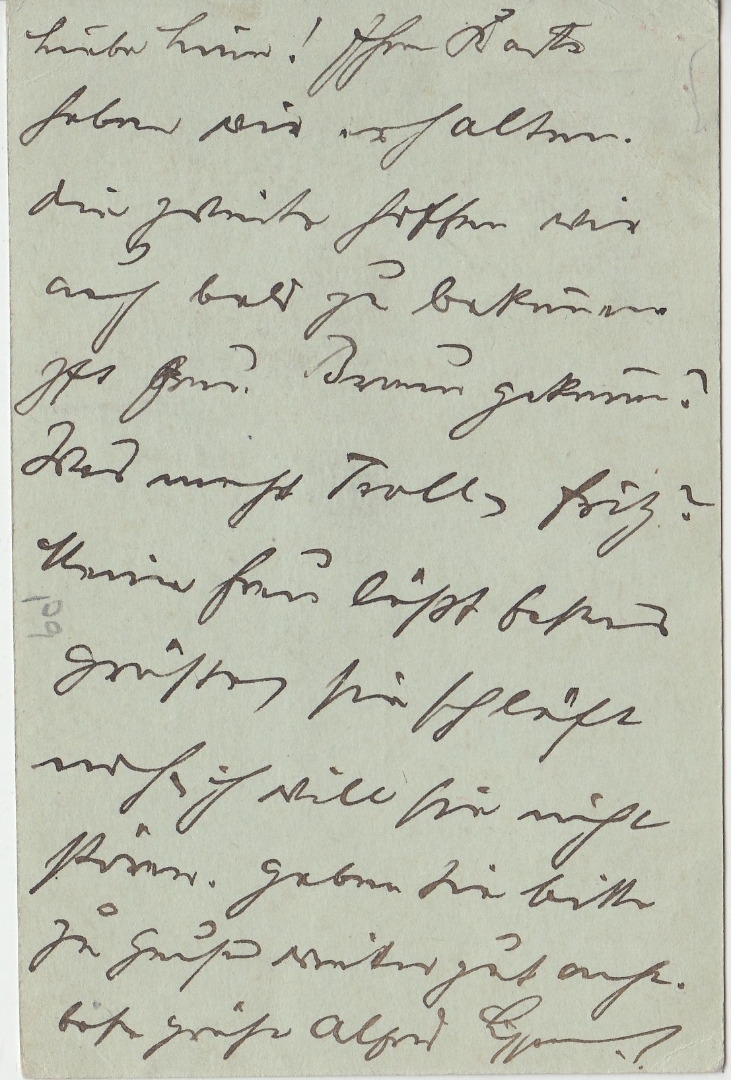 Liebe Line! Ihre Karte
haben wir erhalten.
die zweite hoffen wir
auch bald zu bekommen
Ist Frau Braun gekommen?
Was macht Troll, Fritz?
Meine Frau läßt bestens
grüßen, sie schläft
noch, ich will sie nicht
stören. Geben Sie bitte
zu Hause weiter gut acht.
beste Grüße Alfred